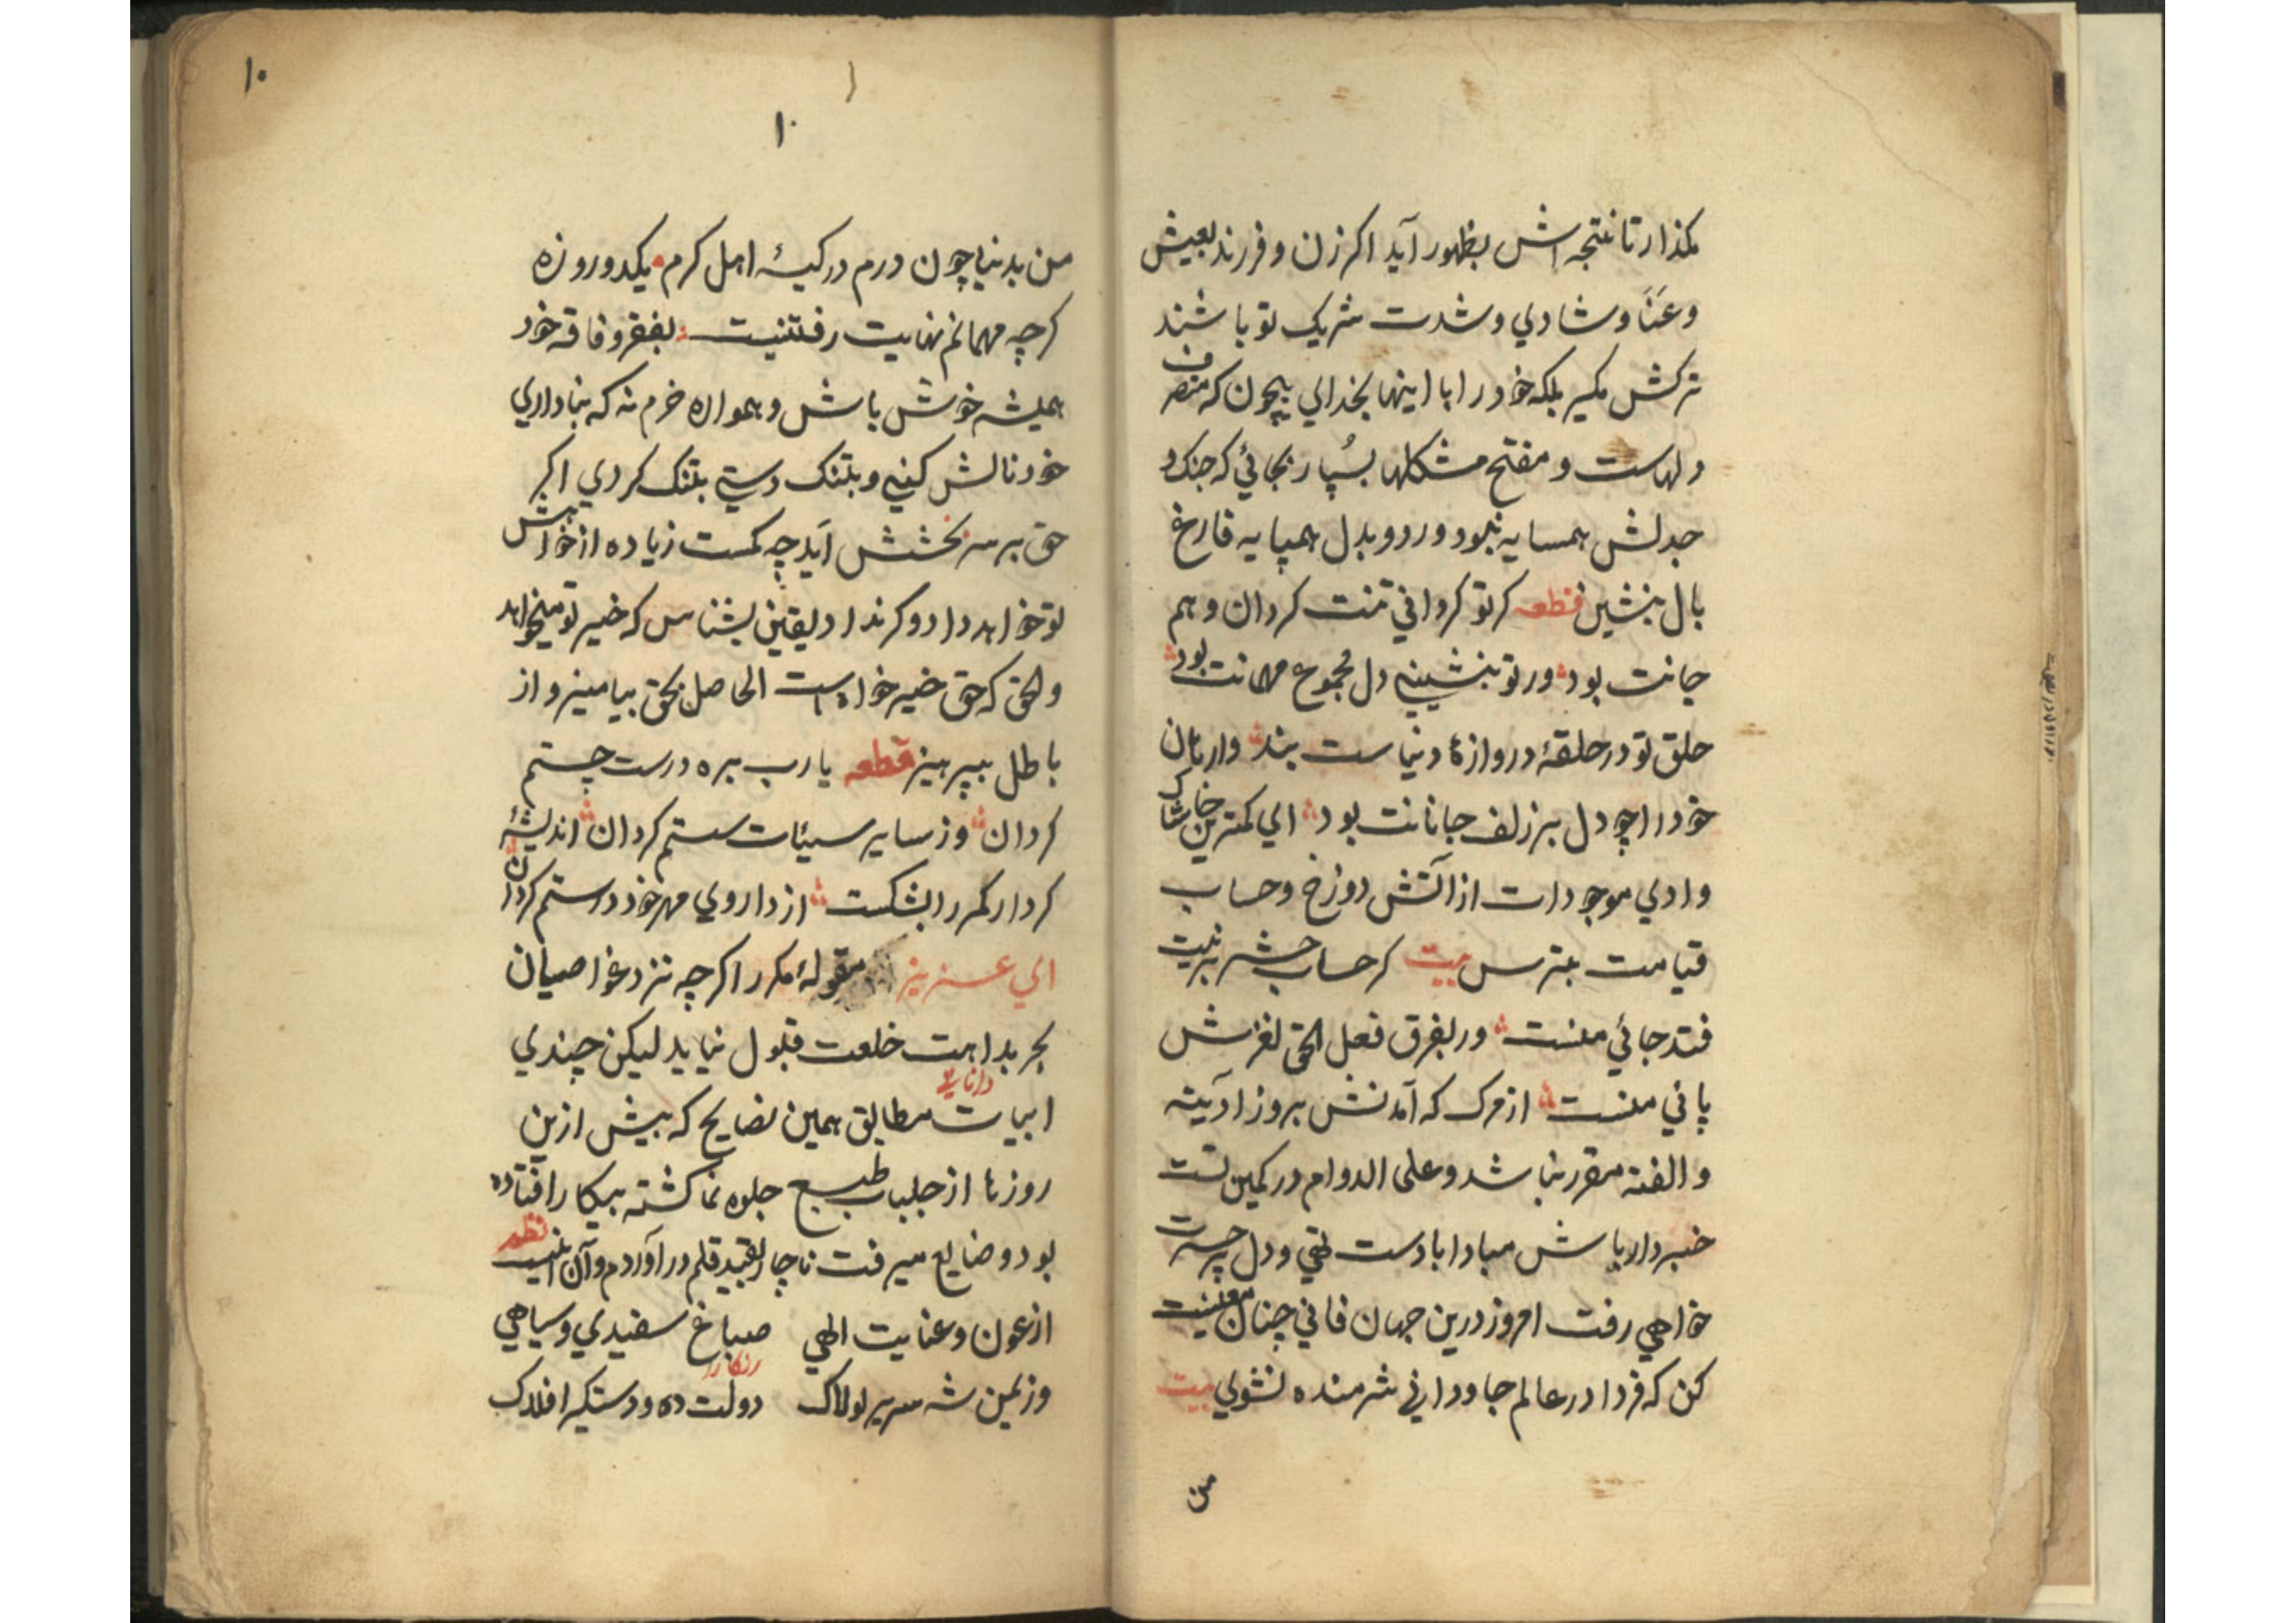 بگذار تا نتیجه اش بظهور آید اگر زن و فرزند بعیش
و عنا و شادي و شدت شریک تو باشند
ترکش مگیر بلکه خود را با اینها بخداي بیچون که متصرف
دلهاست و مفتح مشکلها بسُپار بجائي که جنک و
جدلش همسایه نبود و رد و بدل همپایه فارغ
بال بنشین قطعه کر تو کرداني تنت کردان و هم
جانت بود ور تو بنشیني دل مجموع مهمانت بود
حلق تو در حلقهٔ دروازهٔ دنیاست بند وارهان
خود را چو دل بر زلف جانانت بود اي کمترین خاشاک
وادي موجودات از آتش دوزخ و حساب
قیامت بترس بیت کر حساب حشر بر نیت
فتد جائي منست ور بفرق فعل الحق لغزش
پائي منست از مرک که آمدنش بروز آدینه
و الفته مقرر نباشد و علی الدوام در کمین تست
خبردار باش مبادا با دست تهي و دل پر حسرت
خواهي رفت امروز درین جهان فاني چنان معیشت
کن که فردا در عالم جاوداني شرمنده نشوي بیت
من
۱۰
۱۰
من بدنیا چون درم در کیسهٔ اهل کرم یکدو روزه
کرچه مهمانم نهایت رفتنیست بفقر و فاقه خود
همیشه خوش باش و همواره خرم نه که بناداري
خود نالش کني و بتنک دستي بتنک کردي اکر
حق بر سر بخشش آید چه کمست زیاده از خواهش
تو خواهد داد و کر نداد یقین بشناس که خیر تو میخواهد
والحق که حق خیر خواه است الحاصل بحق بیامیز و از
باطل بپرهیز قطعه یا رب بره درست چستم
کردان وز سایر سیئات سستم کردان اندیشهٔ
کردار کمر را بشکست از داروي مهر خود درستم کردان
اي عزیز مقولهٔ مکرر اکرچه نزد غواصیان
بحر بداهت خلعت قبول نیابد لیکن چندي
دانائي
ابیات مطابق همین نصایح که پیش ازین
روزها از جلباب طبع جلوه نما کشته بیکار افتاده
بود و ضایع میرفت ناچار بقید قلم در آوردم و آن اینست نظم
از عون و عنایت الهي صباغ سفیدي و سیاهي
رنکار
وز یمن شه سریر لولاک دولت ده و دستکیر افلاک